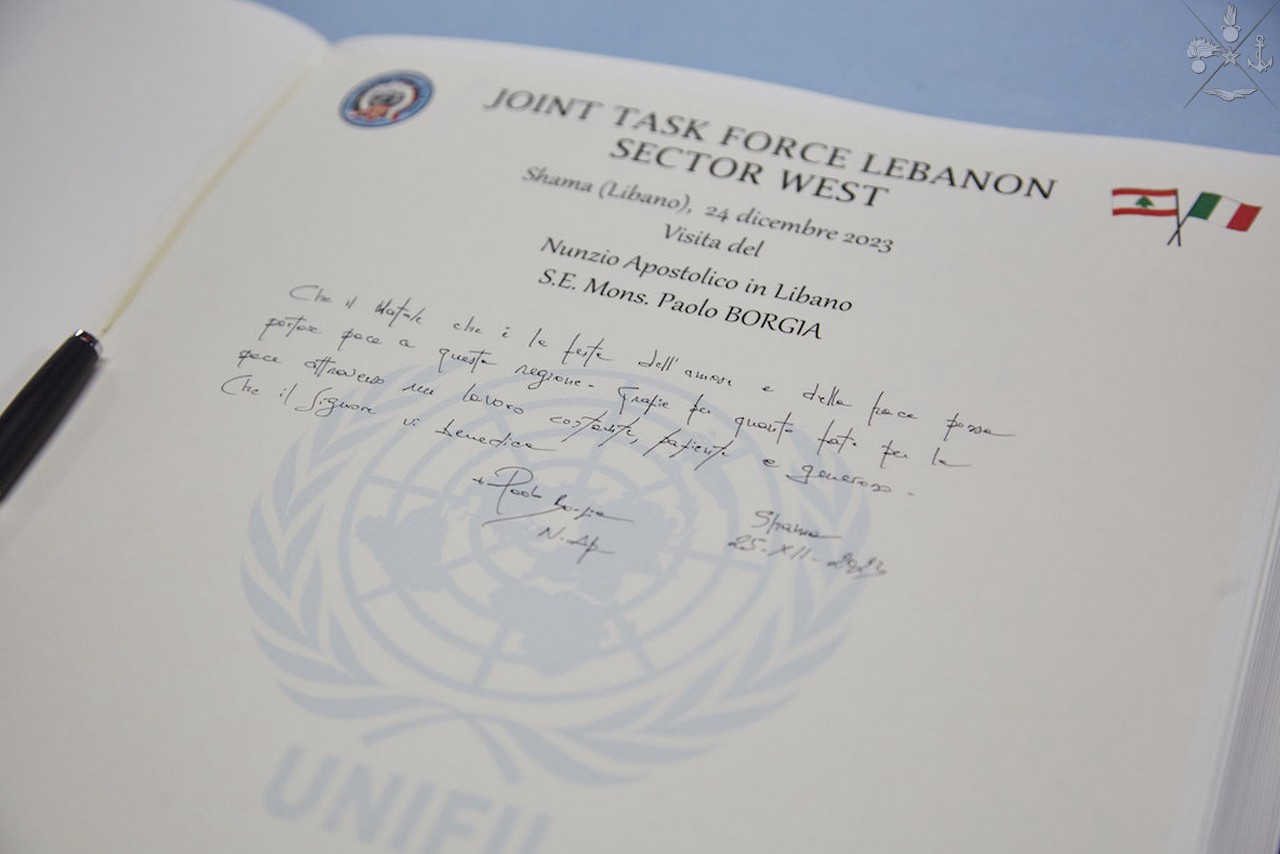 JOINT TASK FORCE LEBANON
SECTOR WEST
Shama (Libano), 24 dicembre 2023
Visita del
Nunzio Apostolico in Libano
S.E. Mons. Paolo BORGIA
Che il Natale che è la festa dell'amore e della pace possa
portare pace a questa regione. Grazie per quanto fate per la
pace attraverso un lavoro costante, paziente e generoso.
Che il Signore vi benedica
+ Paolo Borgia
N. Ap
Shama
25.XII.2023
UNIFIL